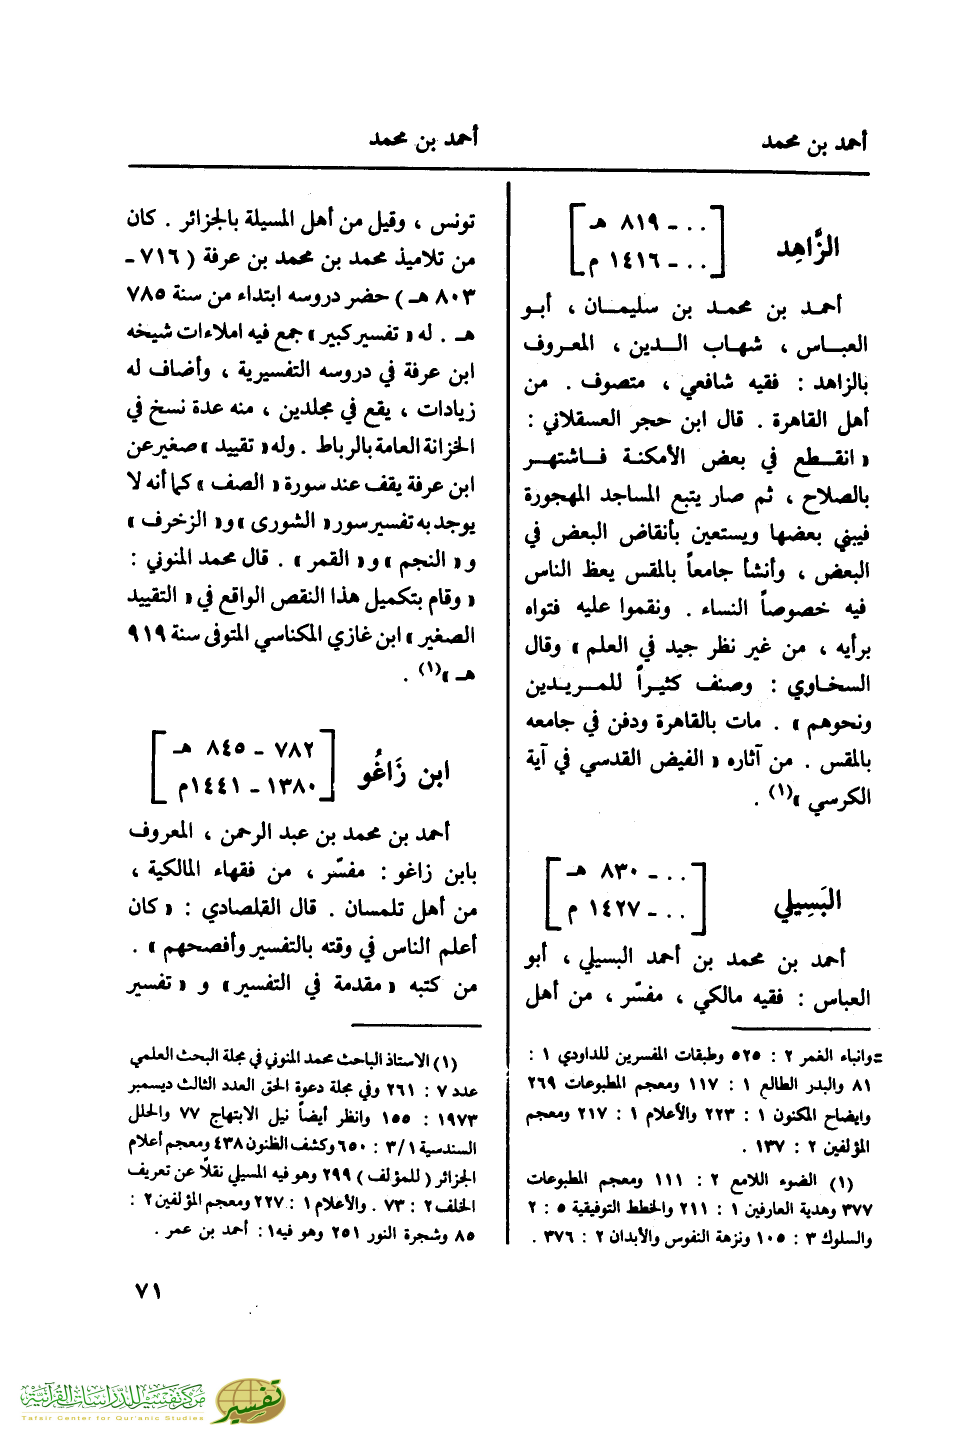 أحمد بن محمد
أحمد بن محمد
الزَّاهِد
[ .. ـ ٨١٩ هـ
.. ـ ١٤١٦ م ]
أحمد بن محمد بن سليمان ، أبو
العباس ، شهاب الدين ، المعروف
بالزاهد : فقيه شافعي ، متصوف . من
أهل القاهرة . قال ابن حجر العسقلاني :
« انقطع في بعض الأمكنة فاشتهر
بالصلاح ، ثم صار يتبع المساجد المهجورة
فيبني بعضها ويستعين بأنقاض البعض في
البعض ، وأنشأ جامعاً بالمقس يعظ الناس
فيه خصوصاً النساء . ونقموا عليه فتواه
برأيه ، من غير نظر جيد في العلم » وقال
السخاوي : وصنف كثيراً للمريدين
ونحوهم » . مات بالقاهرة ودفن في جامعه
بالمقس . من آثاره « الفيض القدسي في آية
الكرسي »(١) .
البَسِيلي
[ .. ـ ٨٣٠ هـ
.. ـ ١٤٢٧ م ]
أحمد بن محمد بن أحمد البسيلي ، أبو
العباس : فقيه مالكي ، مفسّر ، من أهل
= وانباء الغمر ٢ : ٥٢٥ وطبقات المفسرين للداودي ١ :
٨١ والبدر الطالع ١ : ١١٧ ومعجم المطبوعات ٢٦٩
وايضاح المكنون ١ : ٢٢٣ والأعلام ١ : ٢١٧ ومعجم
المؤلفين ٢ : ١٣٧ .
(١) الضوء اللامع ٢ : ١١١ ومعجم المطبوعات
٣٧٧ وهدية العارفين ١ : ٢١١ والخطط التوفيقية ٥ : ٢
والسلوك ٣ : ١٠٥ ونزهة النفوس والأبدان ٢ : ٣٧٦ .
تونس ، وقيل من أهل المسيلة بالجزائر . كان
من تلاميذ محمد بن محمد بن عرفة ( ٧١٦ ـ
٨٠٣ هـ ) حضر دروسه ابتداء من سنة ٧٨٥
هـ . له « تفسير كبير » جمع فيه املاءات شيخه
ابن عرفة في دروسه التفسيرية ، وأضاف له
زيادات ، يقع في مجلدين ، منه عدة نسخ في
الخزانة العامة بالرباط . وله « تقييد » صغير عن
ابن عرفة يقف عند سورة « الصف » كما أنه لا
يوجد به تفسير سور « الشورى » و « الزخرف »
و « النجم » و « القمر » . قال محمد المنوني :
« وقام بتكميل هذا النقص الواقع في « التقييد
الصغير » ابن غازي المكناسي المتوفى سنة ٩١٩
هـ »(١) .
ابن زَاغُو
[ ٧٨٢ ـ ٨٤٥ هـ
١٣٨٠ ـ ١٤٤١م ]
أحمد بن محمد بن عبد الرحمن ، المعروف
بابن زاغو : مفسّر ، من فقهاء المالكية ،
من أهل تلمسان . قال القلصادي : « كان
أعلم الناس في وقته بالتفسير وأفصحهم » .
من كتبه « مقدمة في التفسير » و « تفسير
(١) الاستاذ الباحث محمد المنوني في مجلة البحث العلمي
عدد ٧ : ٢٦١ وفي مجلة دعوة الحق العدد الثالث ديسمبر
١٩٧٣ : ١٥٥ وانظر أيضاً نيل الابتهاج ٧٧ والحلل
السندسية ٣/١ : ٦٥٠ وكشف الظنون ٤٣٨ ومعجم أعلام
الجزائر ( للمؤلف ) ٢٩٩ وهو فيه المسيلي نقلاً عن تعريف
الخلف ٢ : ٧٣ . والأعلام ١ : ٢٢٧ ومعجم المؤلفين ٢ :
٨٥ وشجرة النور ٢٥١ وهو فيه١ : أحمد بن عمر .
٧١
مركز تفسير للدراسات القرآنية
Tafsir Center for Qur'anic Studies
تفسير